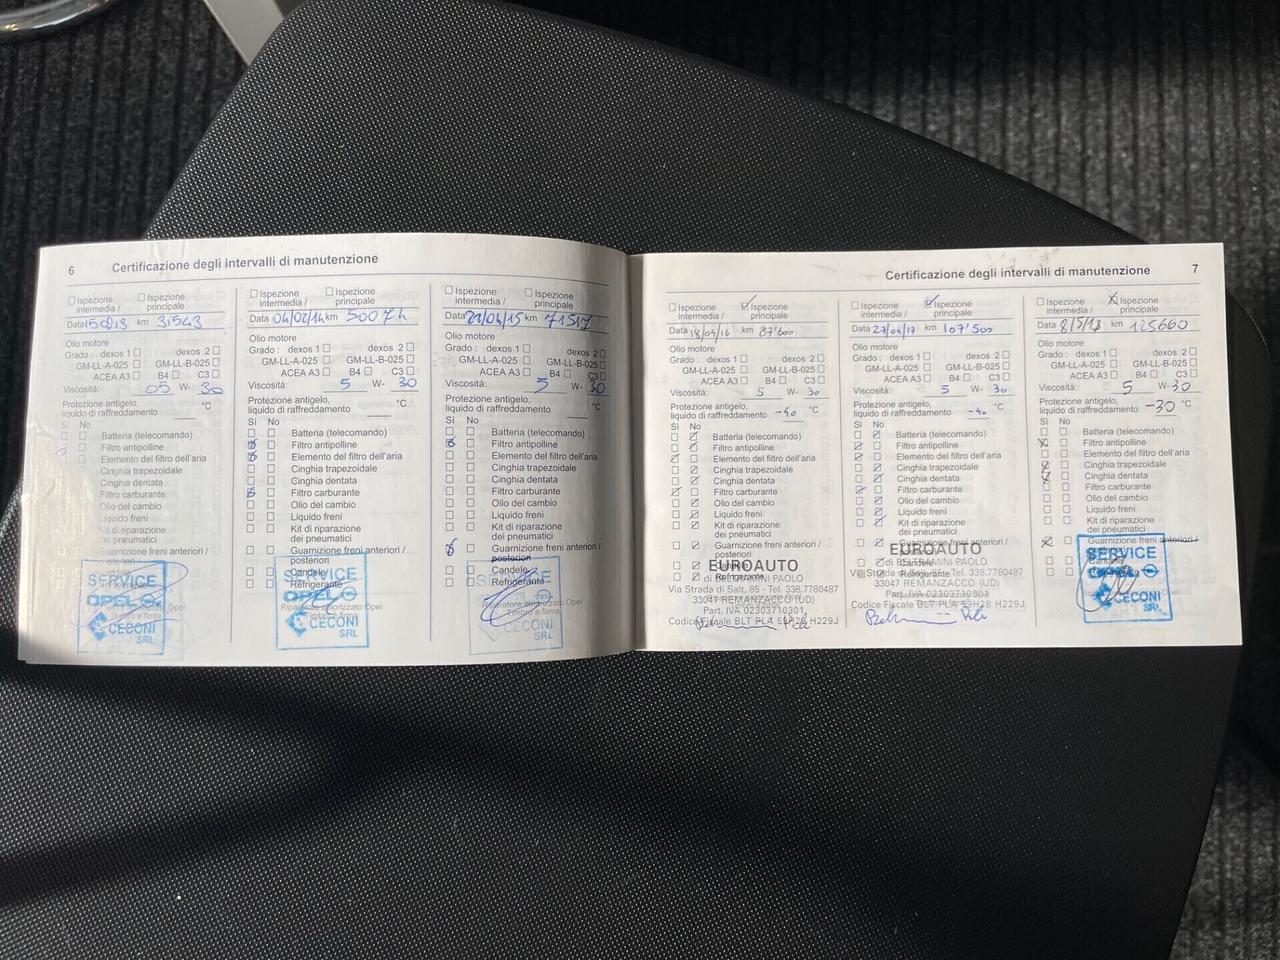 6 Certificazione degli intervalli di manutenzione
Ispezione intermedia /
Ispezione principale
Data km 31543
Olio motore
Grado : dexos 1 dexos 2
GM-LL-A-025 GM-LL-B-025
ACEA A3 B4 C3
Viscosità: 05 W- 30
Protezione antigelo,
liquido di raffreddamento °C
Sì No
Batteria (telecomando)
Filtro antipolline
Elemento del filtro dell'aria
Cinghia trapezoidale
Cinghia dentata
Filtro carburante
Olio del cambio
Liquido freni
Kit di riparazione
dei pneumatici
Guarnizione freni anteriori /
SERVICE
OPEL
CECONI
SRL
Ispezione intermedia /
Ispezione principale
Data 04/02/14 km
Olio motore
Grado : dexos 1 dexos 2
GM-LL-A-025 GM-LL-B-025
ACEA A3 B4 C3
Viscosità: 5 W- 30
Protezione antigelo,
liquido di raffreddamento °C
Sì No
Batteria (telecomando)
Filtro antipolline
Elemento del filtro dell'aria
Cinghia trapezoidale
Cinghia dentata
Filtro carburante
Olio del cambio
Liquido freni
Kit di riparazione
dei pneumatici
Guarnizione freni anteriori /
posteriori
Candele
Refrigerante
Riparatore autorizzato Opel
Timbro e firma
SERVICE
OPEL
CECONI
SRL
Ispezione intermedia /
Ispezione principale
Data 22/04/15 km 71517
Olio motore
Grado : dexos 1 dexos 2
GM-LL-A-025 GM-LL-B-025
ACEA A3 B4 C3
Viscosità: 5 W- 30
Protezione antigelo,
liquido di raffreddamento °C
Sì No
Batteria (telecomando)
Filtro antipolline
Elemento del filtro dell'aria
Cinghia trapezoidale
Cinghia dentata
Filtro carburante
Olio del cambio
Liquido freni
Kit di riparazione
dei pneumatici
Guarnizione freni anteriori /
posteriori
Candele
Refrigerante
Riparatore autorizzato Opel
Timbro e firma
SERVICE
OPEL
CECONI
SRL
Certificazione degli intervalli di manutenzione 7
Ispezione intermedia /
Ispezione principale
Data 18/04/16 km 87'600
Olio motore
Grado : dexos 1 dexos 2
GM-LL-A-025 GM-LL-B-025
ACEA A3 B4 C3
Viscosità: 5 W- 30
Protezione antigelo,
liquido di raffreddamento -40 °C
Sì No
Batteria (telecomando)
Filtro antipolline
Elemento del filtro dell'aria
Cinghia trapezoidale
Cinghia dentata
Filtro carburante
Olio del cambio
Liquido freni
Kit di riparazione
dei pneumatici
Guarnizione freni anteriori /
posteriori
Candele
Refrigerante
EUROAUTO
di BELTRAMINI PAOLO
Via Strada di Salt, 85 - Tel. 338.7780487
33047 REMANZACCO (UD)
Part. IVA 02303710301
Codice Fiscale BLT PLA 59H28 H229J
Ispezione intermedia /
Ispezione principale
Data 27/04/17 km 107'500
Olio motore
Grado : dexos 1 dexos 2
GM-LL-A-025 GM-LL-B-025
ACEA A3 B4 C3
Viscosità: 5 W- 30
Protezione antigelo,
liquido di raffreddamento -40 °C
Sì No
Batteria (telecomando)
Filtro antipolline
Elemento del filtro dell'aria
Cinghia trapezoidale
Cinghia dentata
Filtro carburante
Olio del cambio
Liquido freni
Kit di riparazione
dei pneumatici
Guarnizione freni anteriori /
Candele
Refrigerante
EUROAUTO
di BELTRAMINI PAOLO
Via Strada di Salt, 85 - Tel. 338.7780487
33047 REMANZACCO (UD)
Part. IVA 02303710301
Codice Fiscale BLT PLA 59H28 H229J
Ispezione intermedia /
Ispezione principale
Data 8/5/18 km 125660
Olio motore
Grado : dexos 1 dexos 2
GM-LL-A-025 GM-LL-B-025
ACEA A3 B4 C3
Viscosità: 5 W- 30
Protezione antigelo,
liquido di raffreddamento -30 °C
Sì No
Batteria (telecomando)
Filtro antipolline
Elemento del filtro dell'aria
Cinghia trapezoidale
Cinghia dentata
Filtro carburante
Olio del cambio
Liquido freni
Kit di riparazione
dei pneumatici
Guarnizione freni anteriori /
SERVICE
OPEL
CECONI
SRL